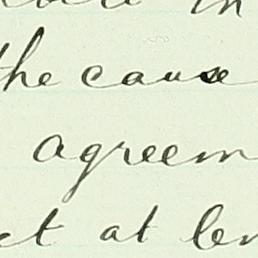 in
the cause
agreem
ct at len